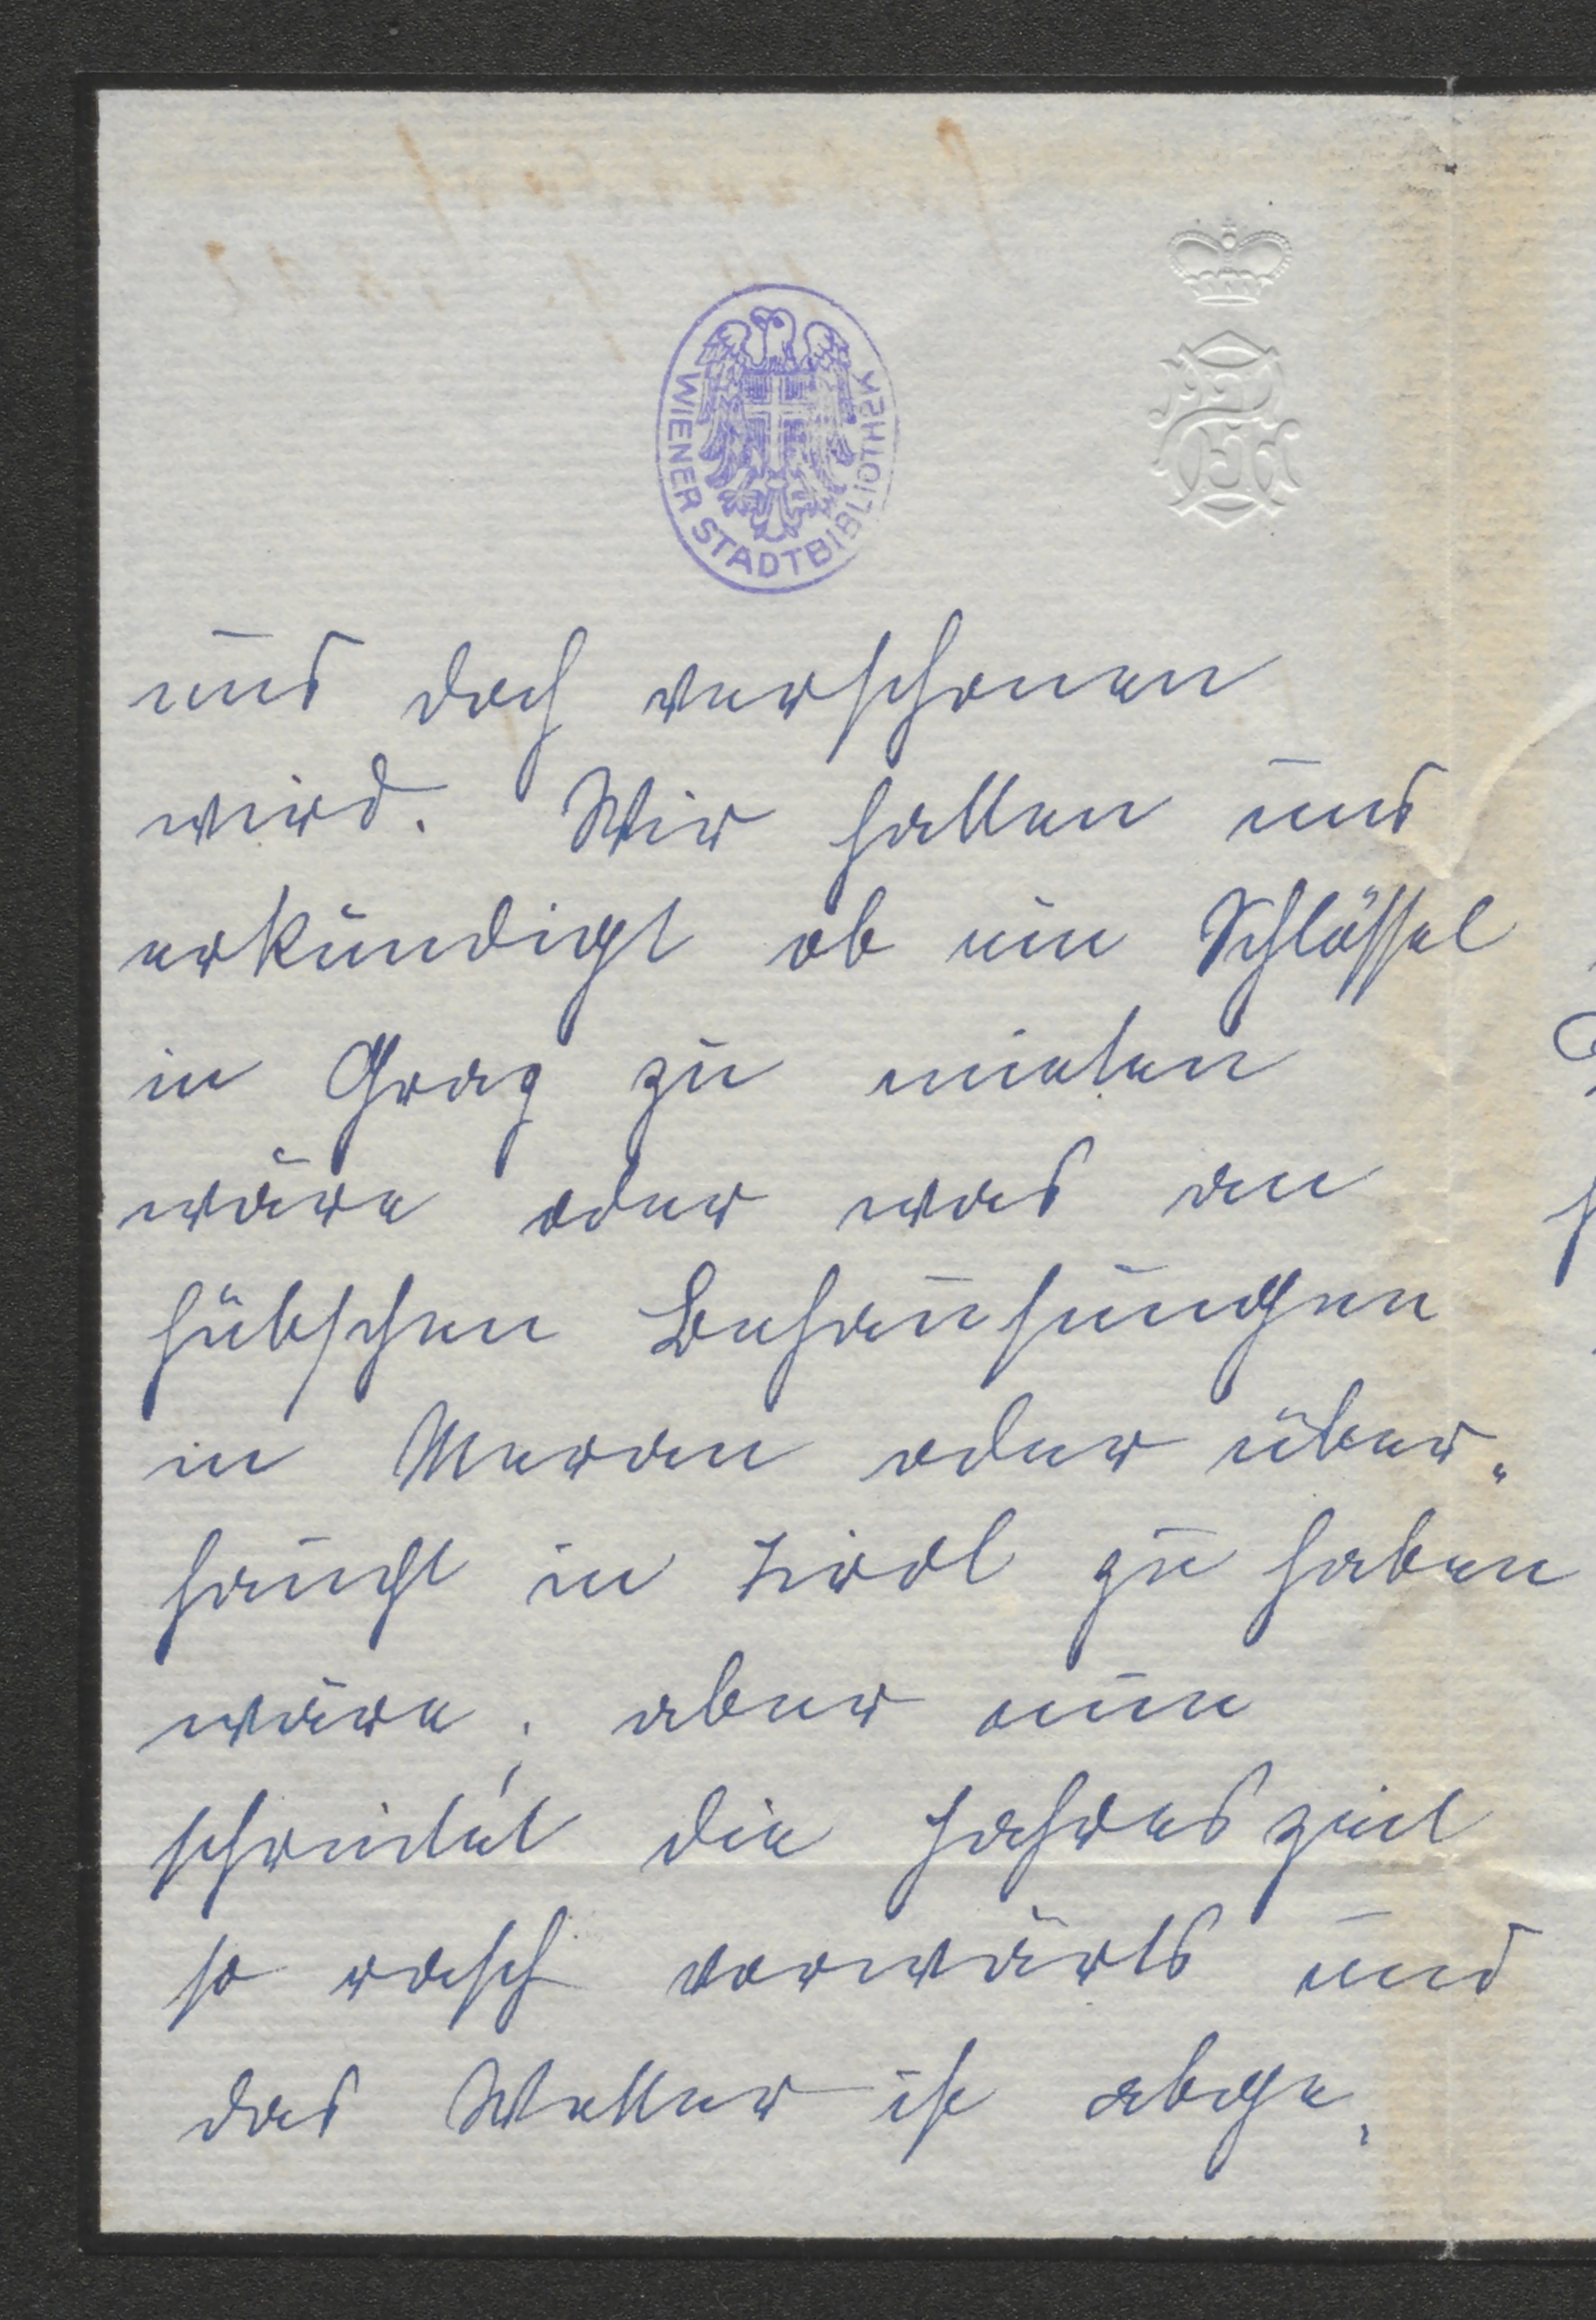 WIENER STADTBIBLIOTHEK
uns doch verschonen
wird. Wir hatten uns
erkundigt ob ein Schlössel
in Graz zu mieten
wäre oder was an
hübschen Behausungen
in Meran oder über„
haupt in Tirol zu haben
wäre; aber nun
schreitet die Jahreszeit
so rasch vorwärts und
das Wetter ist abge„